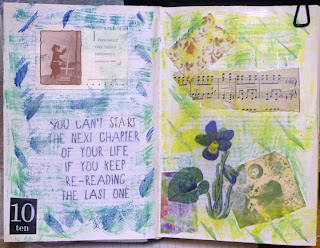 YOU CAN'T START
THE NEXT CHAPTER
OF YOUR LIFE
IF YOU KEEP
RE-READING
THE LAST ONE
10
ten